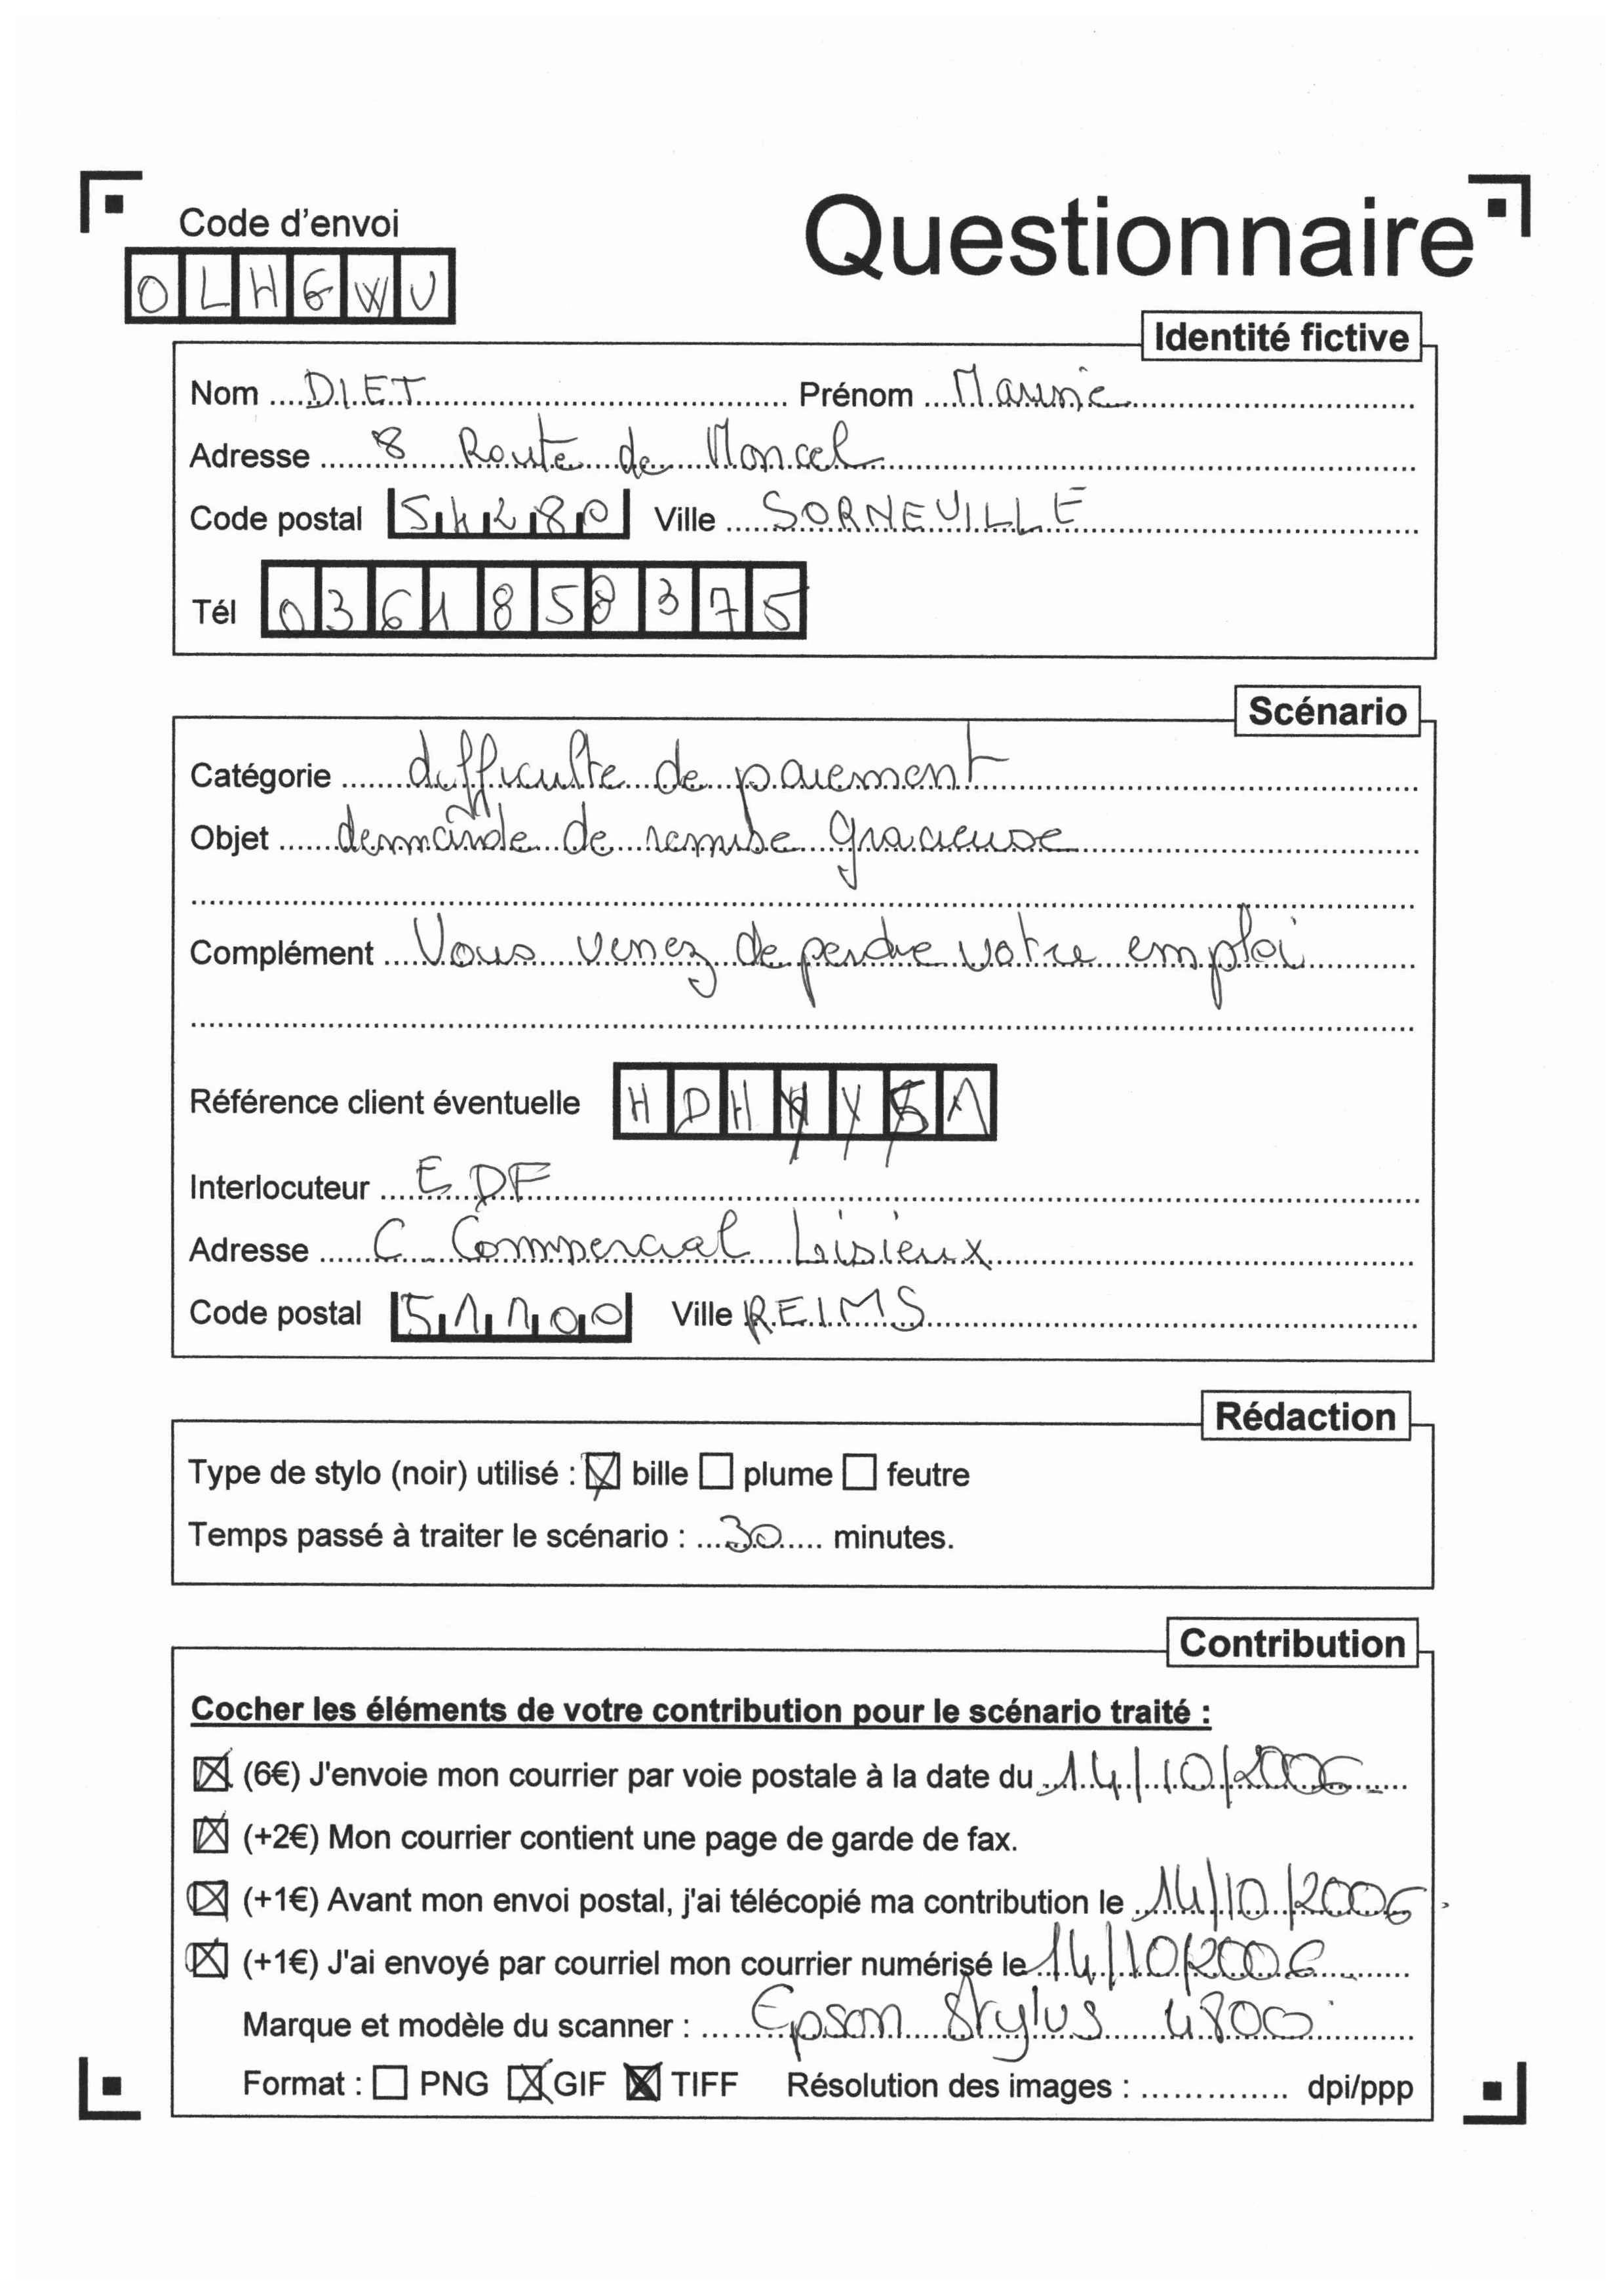 Questionnaire
Code d'envoi
OLHGWU
Identité fictive
Nom DIET Prénom
Adresse 8 Route de Moncel
Code postal 54280 Ville SORNEVILLE
Tél 0361858375
Scénario
Catégorie difficulte de paiement
Objet demande de remise gracieuse
Complément Vous venez de perdre votre emploi
Référence client éventuelle
Interlocuteur EDF
Adresse C Commercial Lisieux
Code postal 51100 Ville REIMS
Rédaction
Type de stylo (noir) utilisé : bille plume feutre
Temps passé à traiter le scénario : 30 minutes.
Contribution
Cocher les éléments de votre contribution pour le scénario traité :
(6€) J'envoie mon courrier par voie postale à la date du 14/10/2006
(+2€) Mon courrier contient une page de garde de fax.
(+1€) Avant mon envoi postal, j'ai télécopié ma contribution le 14/10/2006
(+1€) J'ai envoyé par courriel mon courrier numérisé le 14/10/2006
Marque et modèle du scanner : Epson Stylus 4800
Format : PNG GIF TIFF Résolution des images : .............. dpi/ppp